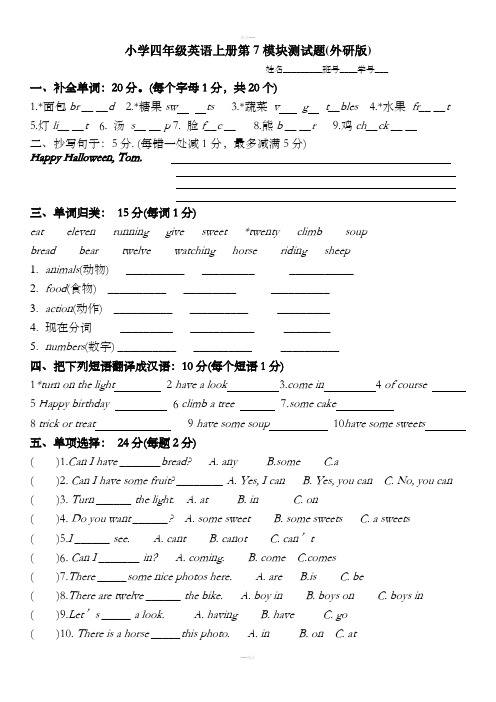 小学四年级英语上册第7模块测试题(外研版)
姓名_________班号____学号___
一、补全单词：20分。(每个字母1分，共20个)
1.*面包 br__ __d 2.*糖果 sw__ __ts 3.*蔬菜 v__g__t__bles 4.*水果 fr__ __t
5.灯 li__ __t 6. 汤 s__ __p 7. 脸 f__c__ 8.熊 b__ __r 9.鸡 ch__ck__ __
二、抄写句子：5分. (每错一处减1分，最多减满5分)
Happy Halloween, Tom.
三、单词归类： 15分(每词1分)
eat eleven running give sweet *twenty climb soup
bread bear twelve watching horse riding sheep
1. animals(动物) _________ ________ __________
2. food(食物) _________ ________ _________
3. action(动作) _________ _________ ________
4. 现在分词 ________ _________ _______
5. numbers(数字) _________ _________ _________
四、把下列短语翻译成汉语：10分(每个短语1分)
1*turn on the light 2 have a look 3.come in 4 of course
5 Happy birthday 6 climb a tree 7.some cake
8 trick or treat 9 have some soup 10have some sweets
五、单项选择： 24分(每题2分)
( )1.Can I have _______bread? A. any B.some C.a
( )2. Can I have some fruit?________ A. Yes, I can B. Yes, you can C. No, you can
( )3. Turn ______ the light. A. at B. in C. on
( )4. Do you want ______? A. some sweet B. some sweets C. a sweets
( )5.I ______ see. A. cant B. canot C. can’t
( )6. Can I _______ in? A. coming. B. come C.comes
( )7.There _____some nice photos here. A. are B.is C. be
( )8.There are twelve ______ the bike. A. boy in B. boys on C. boys in
( )9.Let’s _____ a look. A. having B. have C. go
( )10. There is a horse _____this photo. A. in B. on C. at